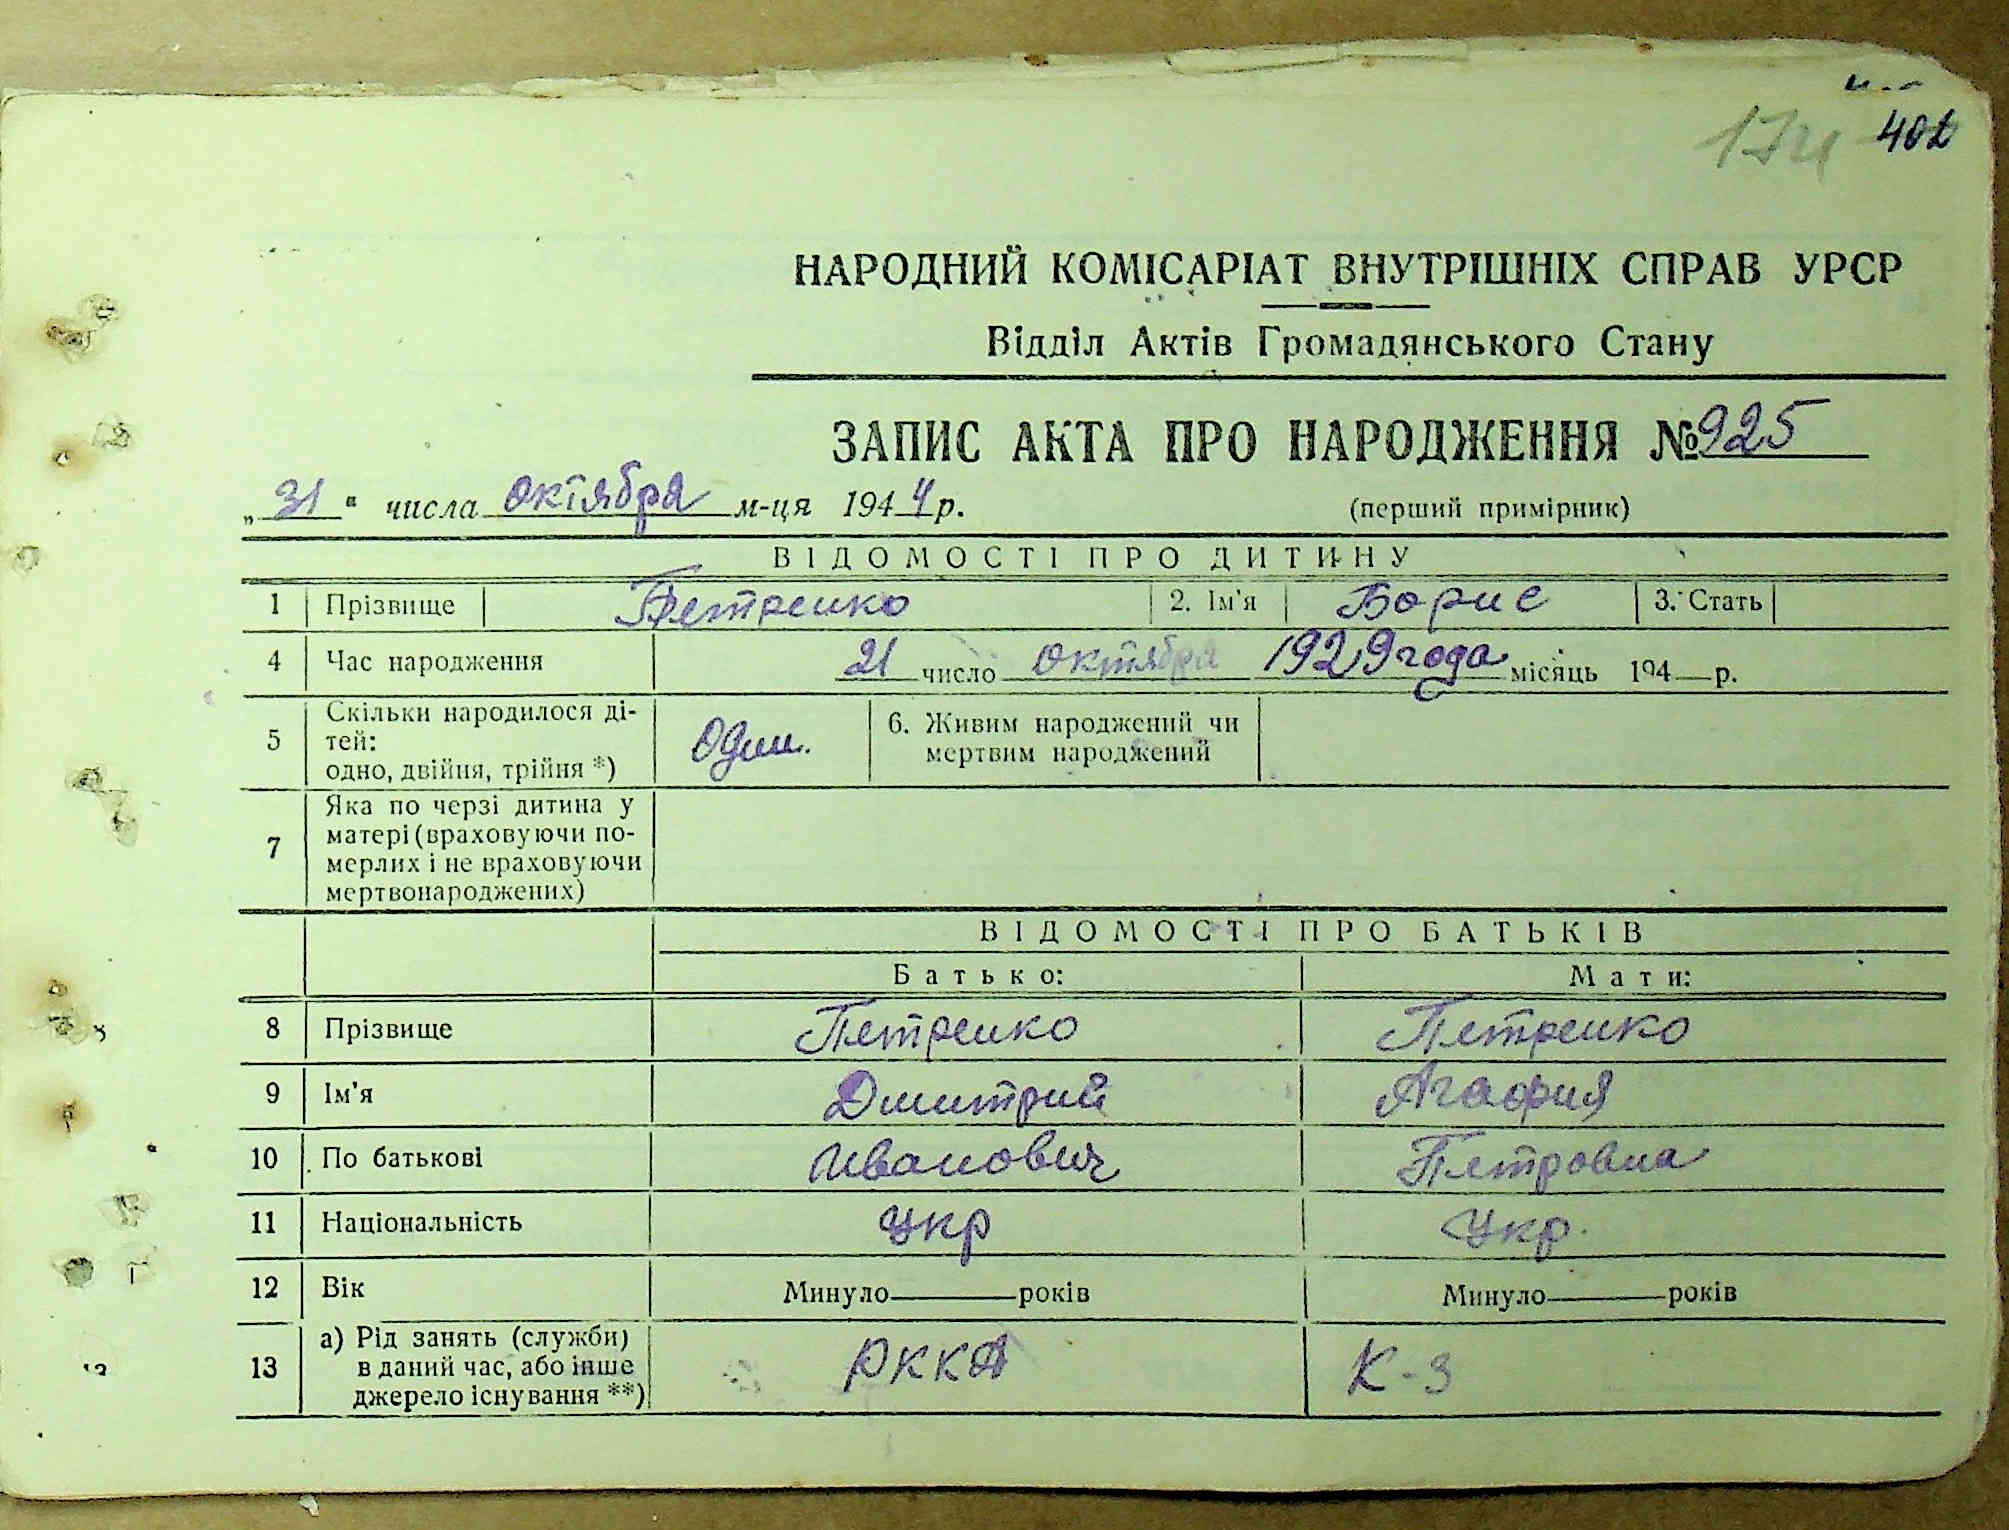 402
НАРОДНИЙ КОМІСАРІАТ ВНУТРІШНІХ СПРАВ УРСР
Відділ Актів Громадянського Стану
ЗАПИС АКТА ПРО НАРОДЖЕННЯ №925
„31“ числа октября м-ця 1944р. (перший примірник)
ВІДОМОСТІ ПРО ДИТИНУ
1 Прізвище Петренко 2. Ім'я Борис 3. Стать
4 Час народження 21 число октября 1929 года місяць 194 р.
5 Скільки народилося ді-
тей:
одно, двійня, трійня *) Один. 6. Живим народжений чи
мертвим народжений
7 Яка по черзі дитина у
матері (враховуючи по-
мерлих і не враховуючи
мертвонароджених)
ВІДОМОСТІ ПРО БАТЬКІВ
Батько: Мати:
8 Прізвище Петренко Петренко
9 Ім'я Дмитрий Агафия
10 По батькові Иванович Петровна
11 Національність Укр Укр.
12 Вік Минуло років Минуло років
13 а) Рід занять (служби)
в даний час, або інше
джерело існування **) РККА К-З